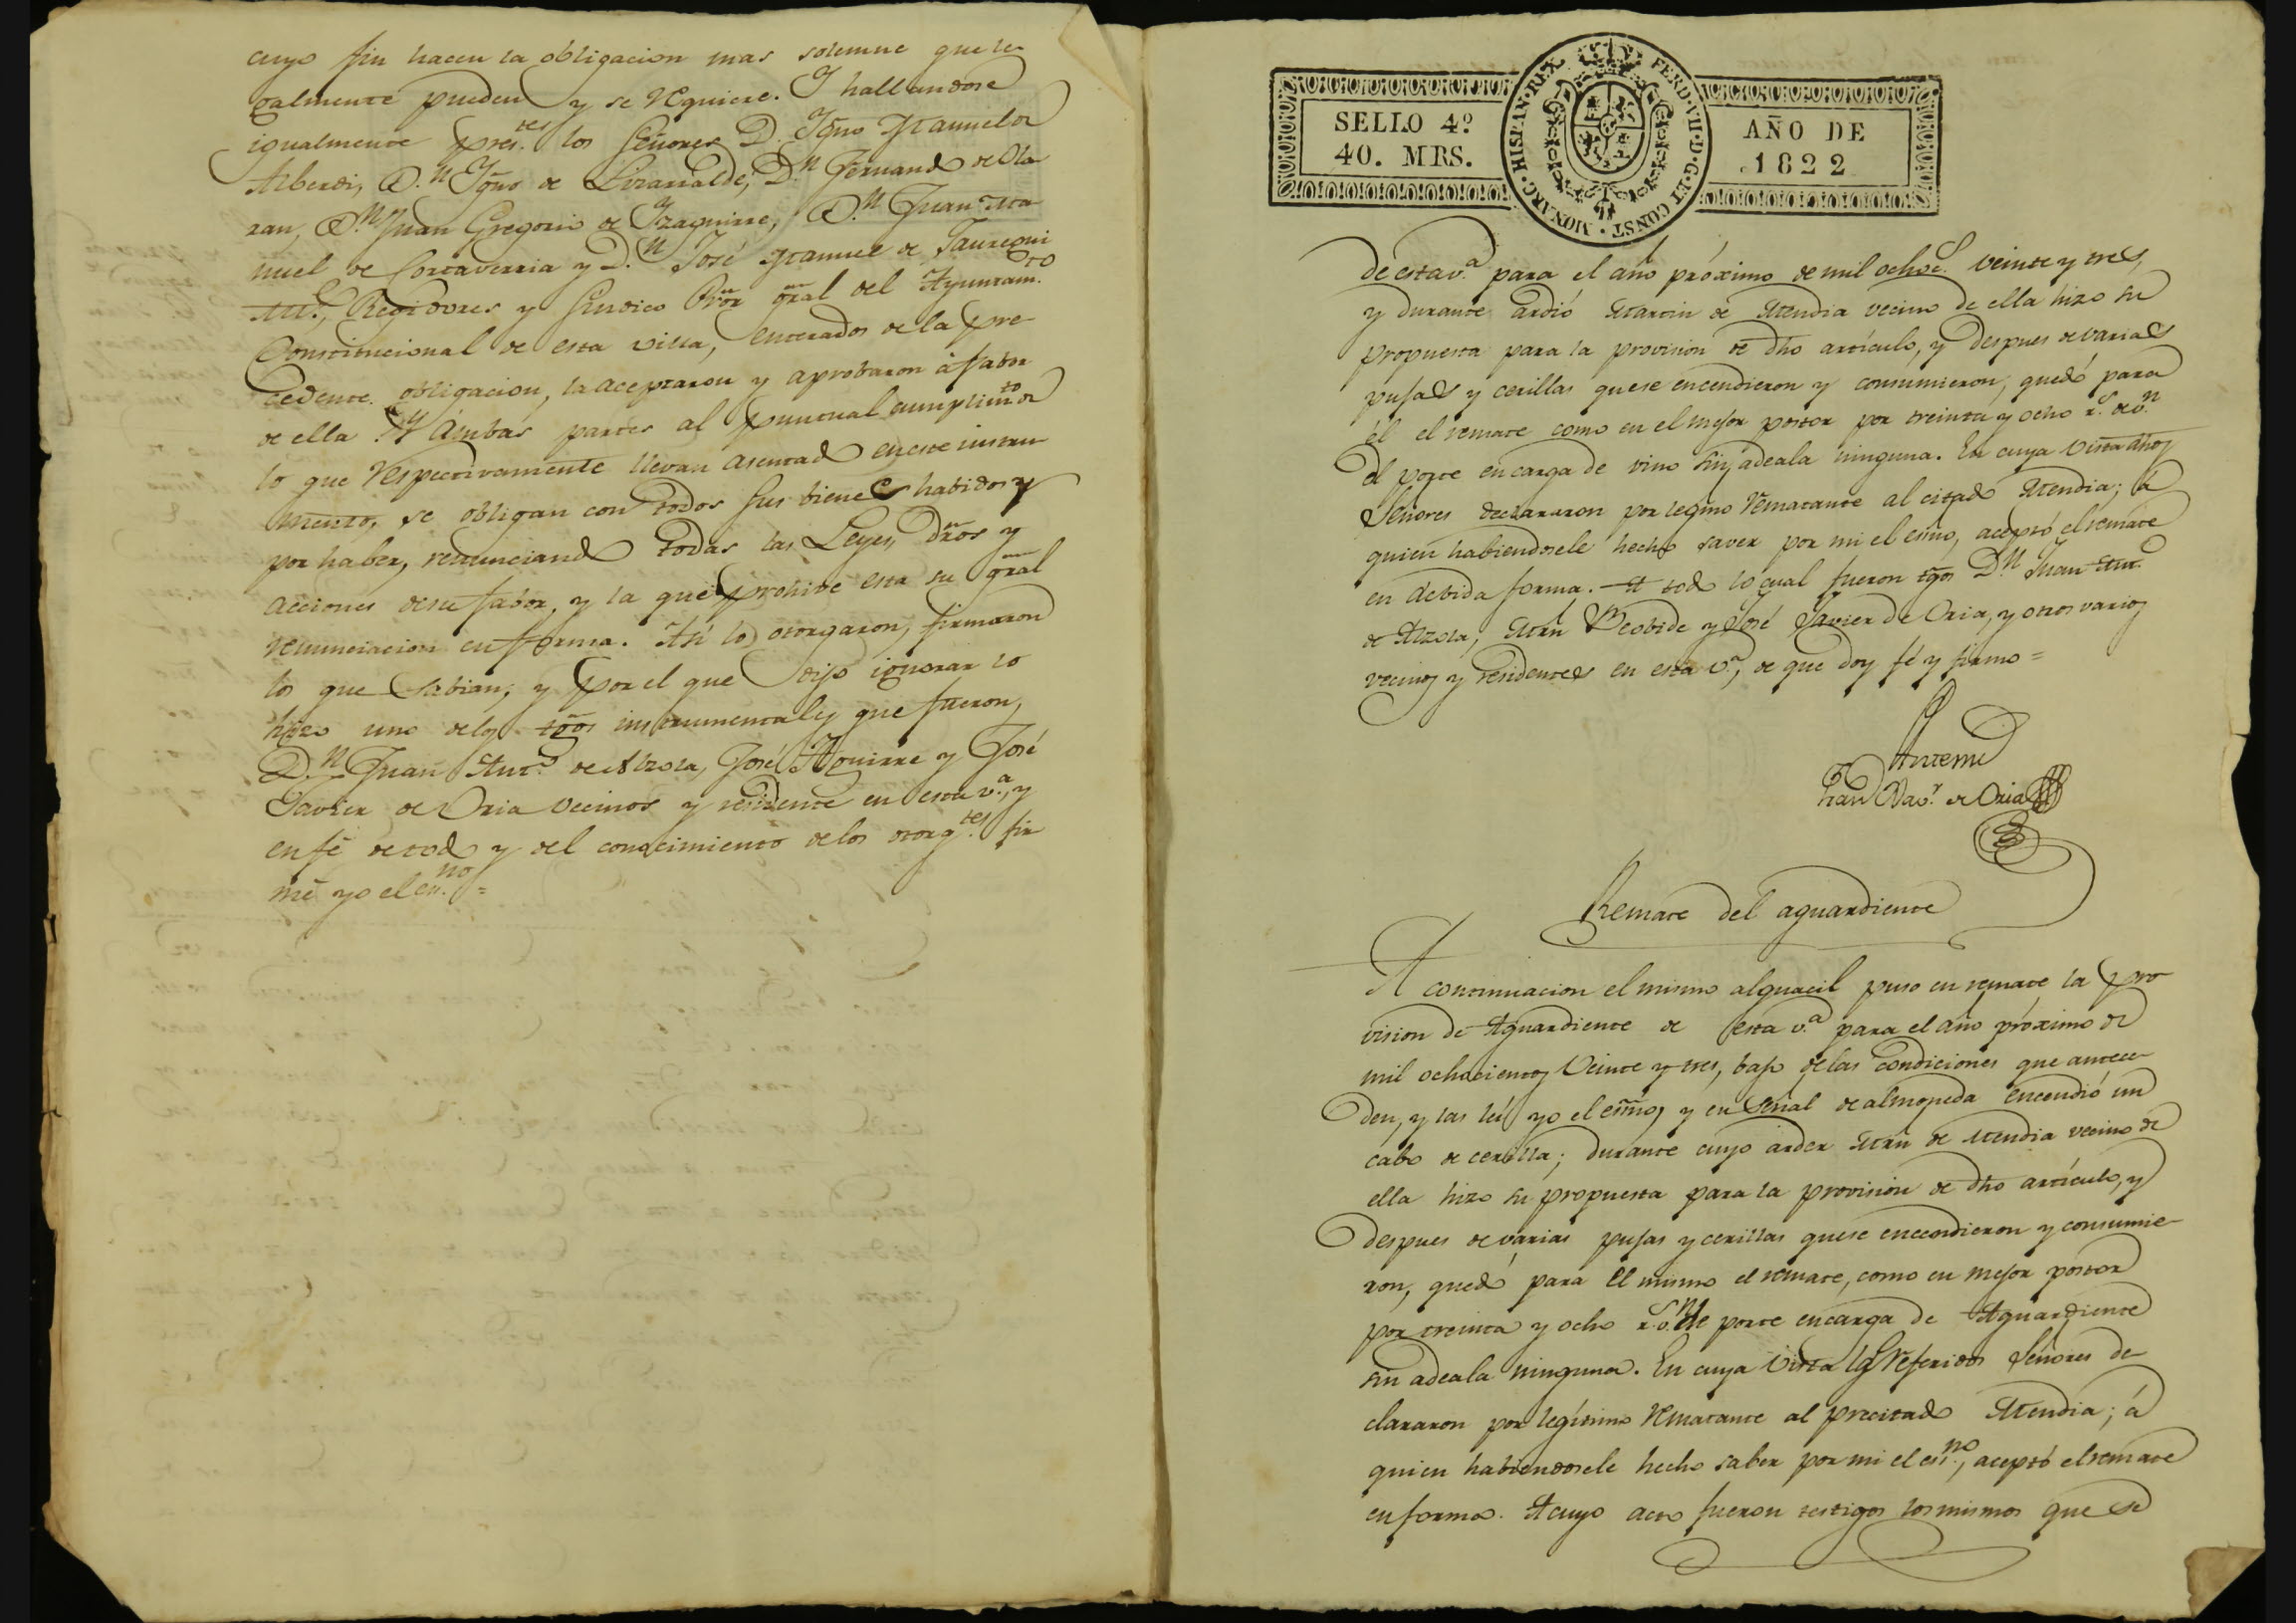 cuyo fin hacen la obligacion mas solemne que le
galmente pueden y se requiere. Y hallandose
igualmente pres.tes los Señores D. Ygno Manuel de
Alberdi, D.n Ygno de Lizarralde, D.n Fernando de Ola
ran, D.n Juan Gregorio de Yzaguirre, D.n Juan Ma
nuel de Cortaverria y D.n José Manuel de Jauregui
Regidores y Sindico Pror gral del Ayuntam.to
Constitucional de esta villa, enterados de la pre
cedente obligacion, la aceptaron y aprobaron á fabor
de ella. Y ámbas partes al puntual cumplim.to de
lo que respectivamente llevan asentado en este instru
mento, se obligan con todos sus bienes habidos y
por haber, renunciando todas las Leyes, dros y
acciones de su fabor, y la que prohive esta su gral
renunciacion en forma. Asi lo otorgaron, firmaron
los que sabian, y por el que dijo ignorar lo
hizo uno de los tgos instrumentales que fueron,
D.n Juan Ant.o de Alzola, José Aguirre y José
Javier de Oria vecinos y residente en esta v.a, y
en fé de todo y del conocimiento de los otorg.tes fir
mé yo el en.no =
SELLO 4º
40. MRS.
MONARC·HISPAN·REX· FERD·VII·D·G·ET CONST·
AÑO DE
1822
de esta v.a para el año próximo de mil ochoc.s veinte y tres,
y durante ardió Martin de Mendia vecino de ella hizo su
propuesta para la provision de dho artículo, y despues de varias
pujas y cerillas que se encendieron y consumieron, quedó para
él el remate como en el mejor postor por treinta y ocho r.s de v.n
del porte en carga de vino sin adeala ninguna. En cuya vista dhos
Señores declararon por legmo rematante al citado Mendia; á
quien habiendosele hecho saver por mi el esno, aceptó el remate
en debida forma. A todo lo cual fueron tgos D.n Juan Ant.o
de Alzola, Mrn Beobide y José Javier de Oria, y otros varios
vecinos y residentes en esta v.a, de que doy fé y firmo =
Antemi
Fran Xav.r de Oria
Remate del aguardiente
A continuacion el mismo alguacil puso en remate la pro
vision de Aguardiente de esta v.a para el año próximo de
mil ochocientos veinte y tres, bajo de las condiciones que antece
den, y las leí yo el esno, y en señal de almoneda encendió un
cabo de cerilla; durante cuyo arder Mrn de Mendia vecino de
ella hizo su propuesta para la provision de dho artículo, y
despues de varias pujas y cerillas que se encendieron y consumie
ron, quedó para él mismo el remate, como en mejor postor
por treinta y ocho r.s v.n de porte en carga de Aguardiente
sin adeala ninguna. En cuya vista los referidos Señores de
clararon por legítimo rematante al precitado Mendia; á
quien habiendosele hecho saber por mi el es.no, aceptó el remate
en forma. A cuyo acto fueron testigos los mismos que se